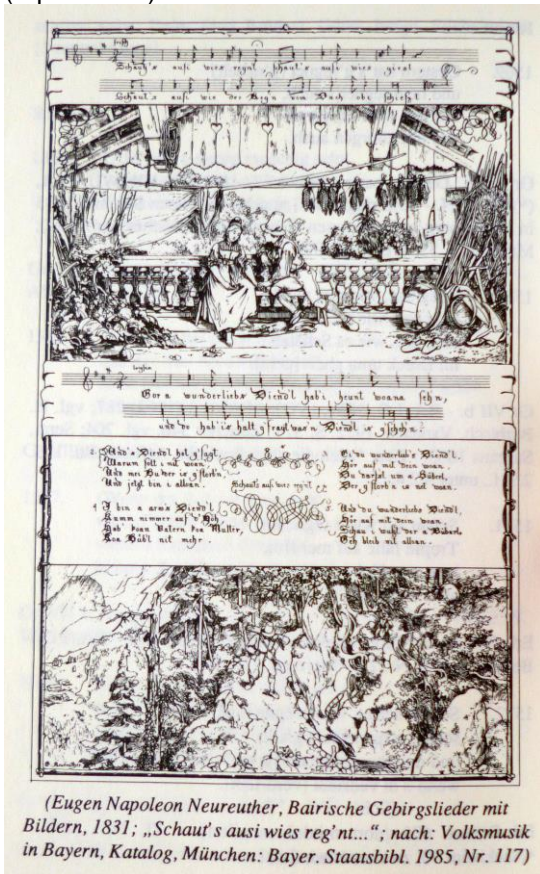 Schaug's ausi wies regnt, schaut's ausi wies
Schaut's ausi wie der Reg'n vom Dach obi schiesst.
Gor a wunderlichs Diend'l hab'i heunt woana seh'n,
und do hab'i's halt g'fragt was'n Diendl is g'scheh'n.
Und's Diend'l hat g'sagt,
Warum sollt i nit woan,
Und mei Bu der is g'storb'n,
Und jetzt bin i alloan.
Schauts ausi wies regn't etc.
Ei du wunderlich's Diend'l,
Hör auf mit dein woan,
Du darfst um a Büberl,
Der g'storb'n is net woan.
4 I bin a arm's Diend'l
Kumm nimmer auf d'Höh,
Hab koan Vatern koa Mutter,
Koa Büb'l nit mehr.
Und du wunderlichs Diend'l,
Hör auf mit dein woan,
Schau i wußt der a Büberl,
bleib nit alloan.
(Eugen Napoleon Neureuther, Bairische Gebirgslieder mit
Bildern, 1831; „Schaut's ausi wies reg'nt..."; nach: Volksmusik
in Bayern, Katalog, München: Bayer. Staatsbibl. 1985, Nr. 117)